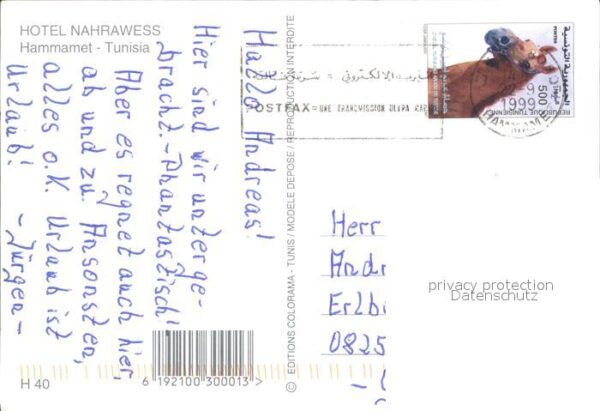 HOTEL NAHRAWESS
Hammamet - Tunisia
Hallo Andreas!
Hier sind wir unterge-
bracht.-Phantastisch!
Aber es regnet auch hier,
ab und zu. Ansonsten,
alles o.K. Urlaub ist
Urlaub!
- Jürgen -
H 40
6 192100 300013 >
© EDITIONS COLORAMA - TUNIS / MODELE DEPOSE / REPRODUCTION INTERDITE
POSTFAX = UNE TRANSMISSION ULTRA
1999
HAMMAMET
الجمهورية التونسية
500
REPUBLIQUE TUNISIENNE
POSTES
Herr
Andr
Erlbi
0825
privacy protection
Datenschutz